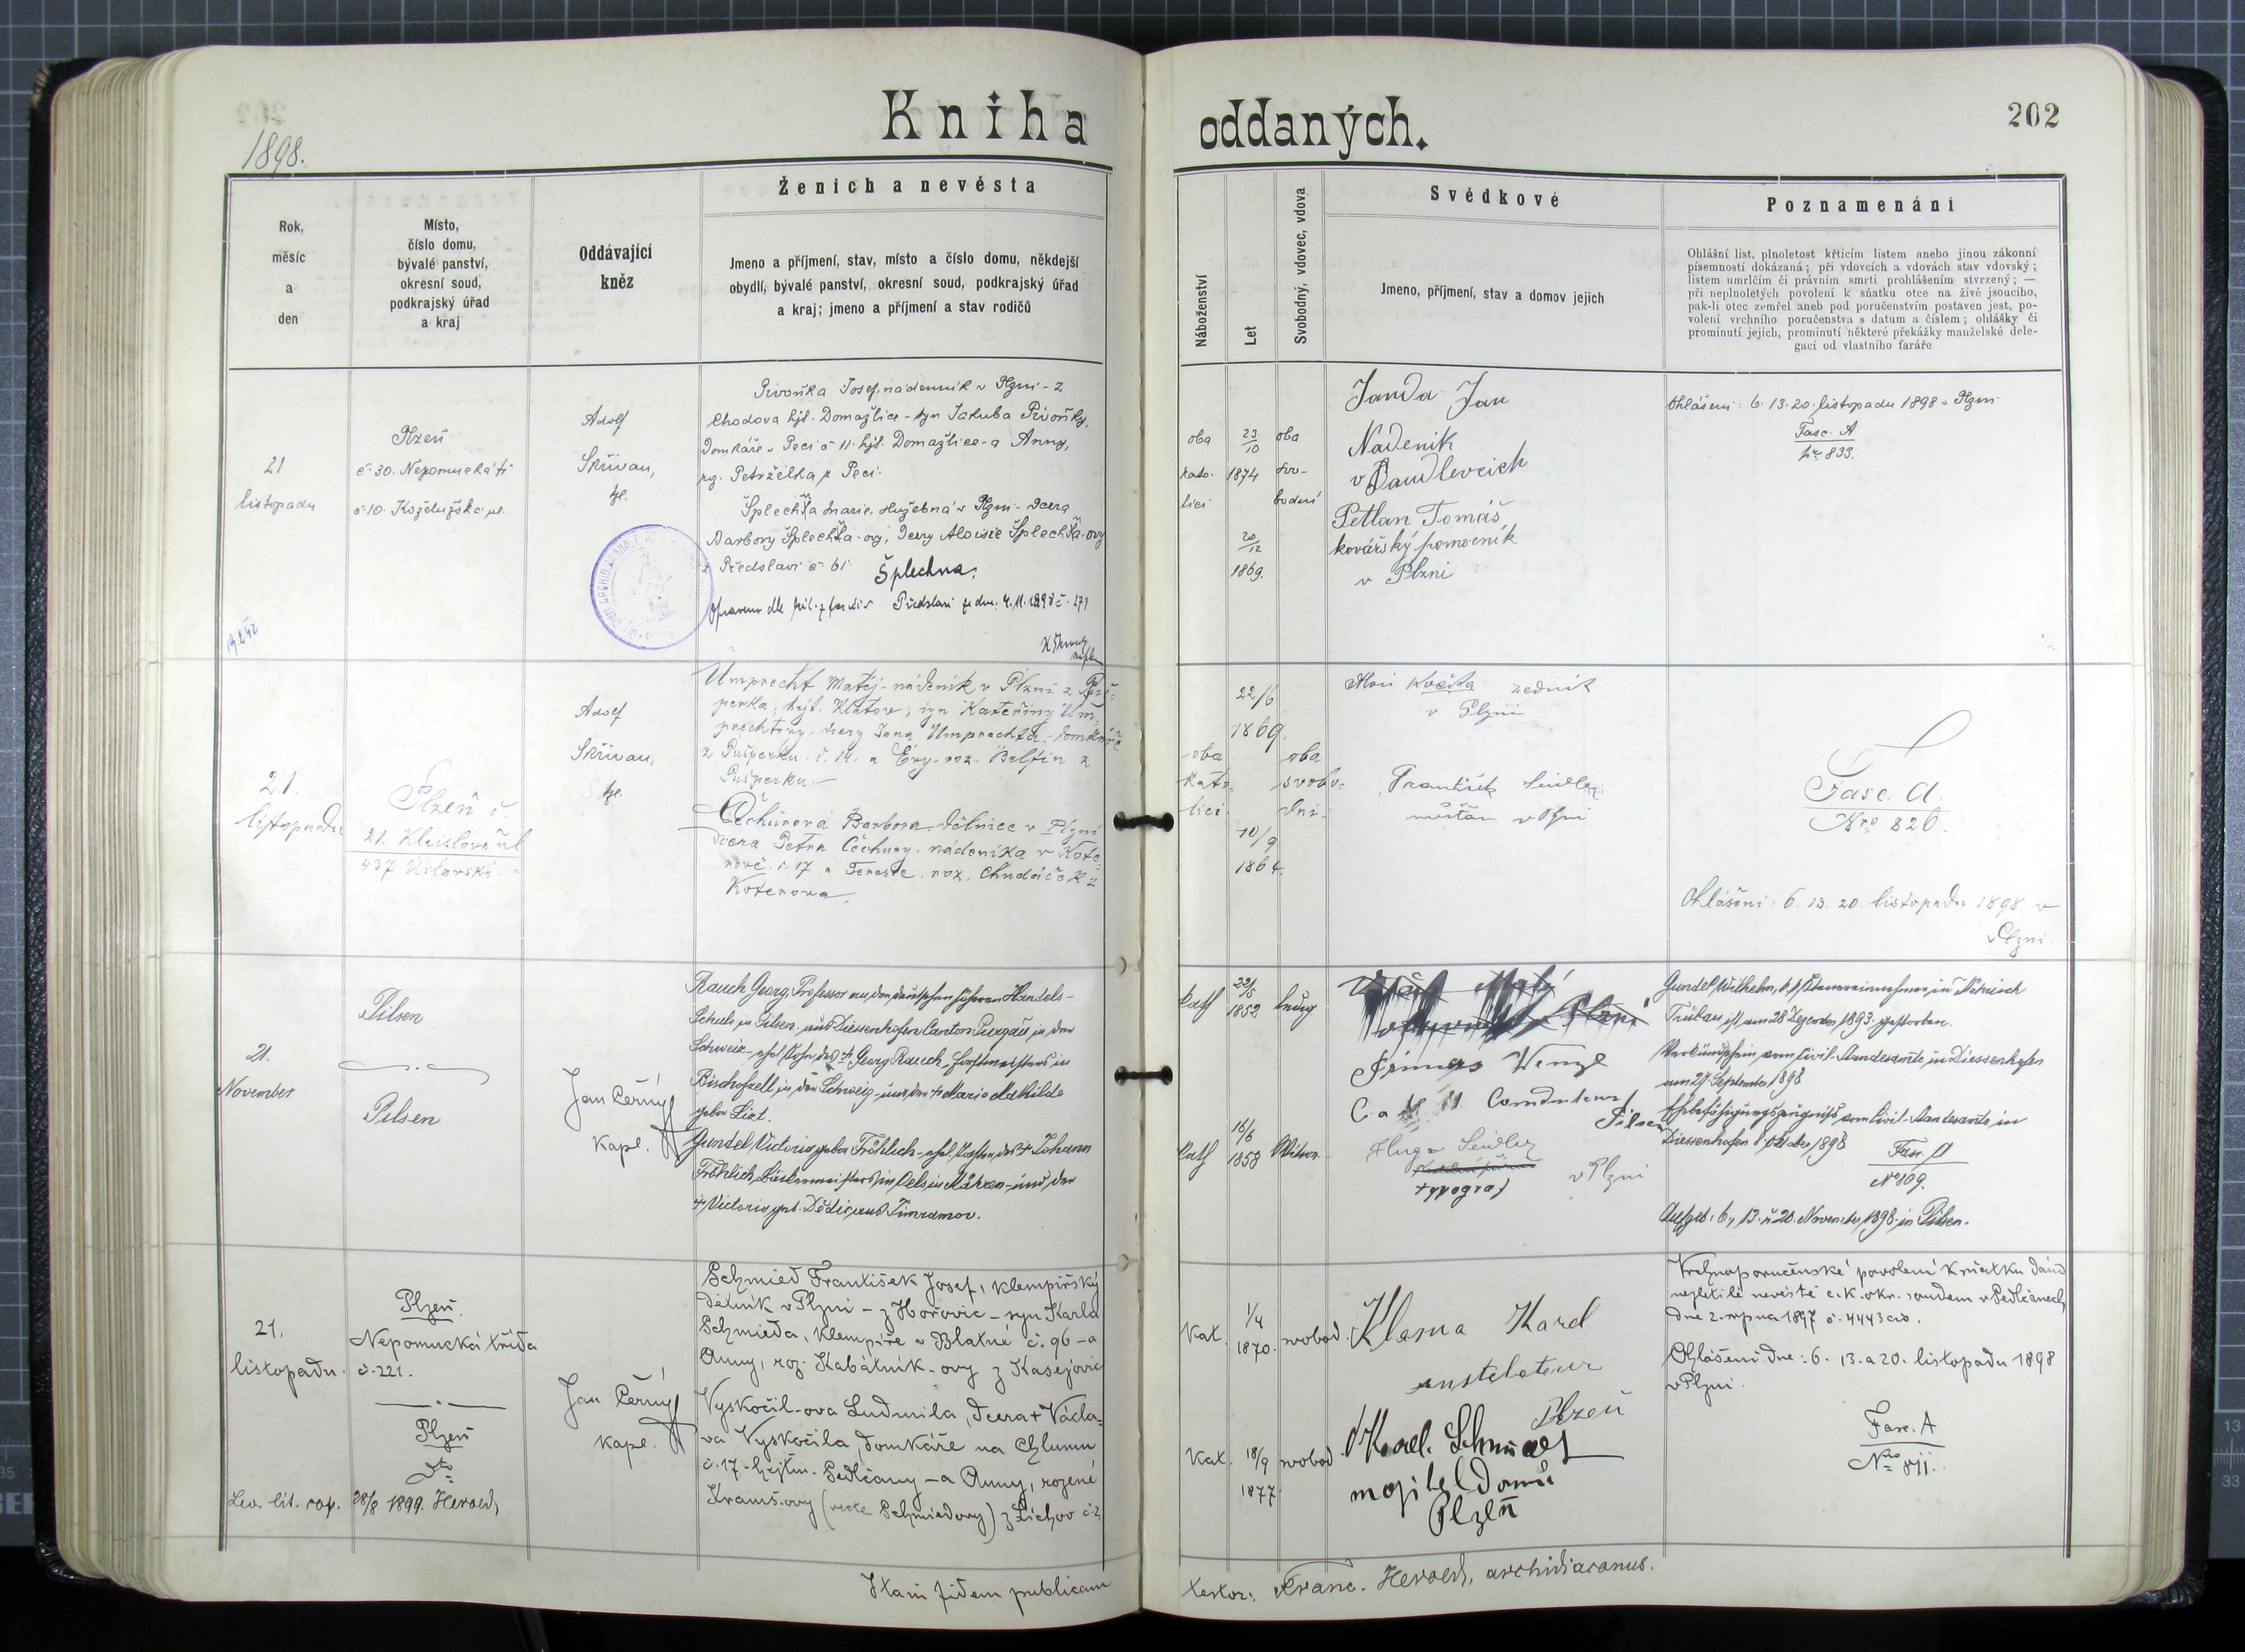 Kniha oddaných.
202
1898.
Rok,
měsíc
a
den
Místo,
číslo domu,
bývalé panství,
okresní soud,
podkrajský úřad
a kraj
Oddávající
kněz
Ženich a nevěsta
Jmeno a příjmení, stav, místo a číslo domu, někdejší
obydlí, bývalé panství, okresní soud, podkrajský úřad
a kraj; jmeno a příjmení a stav rodičů
Náboženství
Let
Svobodný, vdovec, vdova
Svědkové
Jmeno, příjmení, stav a domov jejich
Poznamenání
Ohlášní list, plnoletost křticím listem anebo jinou zákonní
písemností dokázaná; při vdovcích a vdovách stav vdovský;
listem umrlčím či právním smrti prohlášením stvrzený; —
při neplnoletých povolení k sňatku otce na živě jsoucího,
pak-li otec zemřel aneb pod poručenstvím postaven jest, po-
volení vrchního poručenstva s datum a číslem; ohlášky či
prominutí jejich, prominutí některé překážky manželské dele-
gací od vlastního faráře
21
listopadu
Plzeň
č 30. Nepomucká tř
č 10. Koželužská ul.
Adolf
Skřivan,
kpl.
Pivoňka Josef, nádenník v Plzni - z
Chodova hjt. Domažlice - syn Jakuba Pivoňky,
Domkáře v Peci č 11 hjt. Domažlice - a Anny,
roz. Petrželka z Peci.
Šplechťa Marie, služebná v Plzni - dcera
Barbory Šplechťa-ovy, dcery Aloisie Šplechťa-ovy
z Předslavi č 61 Šplechna.
Předslavi ze dne 4.11.1898 č. 271
oba
kato-
lící
23/10
1874
20/12
1869.
oba
svo-
bodní
Janda Jan
Nadenik
v
Petlan Tomáš
kovářský pomocník
v Plzni
Ohlášení: 6. 13. 20. listopadu 1898 v Plzni
Fasc. A
833.
21.
listopadu
Plzeň č.
21. Kleislova ul
437
Adolf
Skřivan,
kpl.
Umprecht Matěj - nádeník v Plzni z Puš-
perka; hejt. Klatov; syn Kateřiny Um-
prechtovy, dcery Jana Umprechta - domkáře
z Pušperku č. 14. a Evy roz. Belfín z
Pušperku.
Čechurová Barbora - dělnice v Plzni
dcera Petra Čechury, nádeníka v Kote-
rově č. 17 a Terezie roz. Chudáček z
Koterova.
oba
kato-
lící
22/6
1869.
10/9
1864.
oba
svobo-
dní.
Alois Kočka zedník
v Plzni
František Seidler
měšťan v Plzni
Fasc. A.
Nro 826.
Ohlášení: 6. 13. 20. listopadu 1898 v
Plzni.
21.
November
Pilsen
Pilsen
Jan Černý
kapl.
Rauch Georg, Professor an der deutschen höheren Handels-
Schule in Pilsen, aus Diessenhofen Canton Turgau in der
Schweiz - ehel. Sohn des † Georg Rauch, Forstmeisters in
Bischofzell in der Schweiz - und der † Marie Mathilde
gebor. List.
Gundel Victoria gebor. Fröhlich - ehel. Tochter des † Johann
Fröhlich, Bürgermeisters in Oels in Mähren - und der
† Victoria geb. Dědic aus Fimramov.
kath
23/5
1852
ledig
kath
16/6
1858
Witwe
Wenzl
Pilsen
Hugo Seidler
typograf
v Plzni
Gundel Wilhelm, k.k. Steuereinnehmer in Mährisch
Trübau ist am 28 Dezember 1893 gestorben.
Verkündschein vom Civil-Standesamte in Diessenhofen
am 27. September 1898
Ehefähigungszeugniss vom Civil-Standesamte in
Diessenhofen 1. Oktober 1898
Fasc. A
No 809.
Aufgeb. 6., 13. u 20. November 1898 in Pilsen.
21.
listopadu
Plzeň.
Nepomucká třída
č. 221.
Plzeň
28/8 1899. Herold
Jan Černý
kapl.
Schmied František Josef, klempířský
dělník v Plzni - z Hořovic - syn Karla
Schmieda, klempíře v Blatné č. 96 - a
Anny, roz. Kabátník-ovy z Kasejovic
Vyskočil-ova Ludmila, dcera † Václa-
va Vyskočila domkáře na Chlumu
č. 17 - hejtm. Sedlčany - a Anny, rozené
Kramš.ovy (recte Schmiedovy) z Líchov č. 2
kat.
1/4
1870.
svobod.
kat.
18/9
1877
svobod.
Klema Karel
instelateur
Plzeň
Karel Schmied
majitel domů
Plzeň
Vrchnoporučenské povolení k sňatku dáno
nezletilé nevěstě c.k. okr. soudem v Sedlčanech
dne 2. srpna 1897 č. 4443 civ.
Ohlášení dne: 6. 13. a 20. listopadu 1898
v Plzni.
Fasc. A
Nro 811.
Itam fidem publicam
testor: Franc. Herold, archidiaconus.